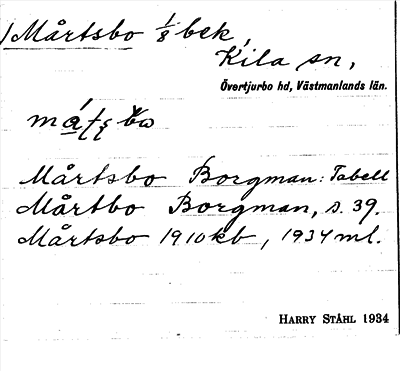 Mårtsbo 1/8 bek,
Kila sn,
Övertjurbo hd, Västmanlands län.
Mårtsbo Borgman: Tabell
Mårtbo Borgman, s. 39.
Mårtsbo 1910 kb, 1934 ml.
HARRY STÅHL 1934